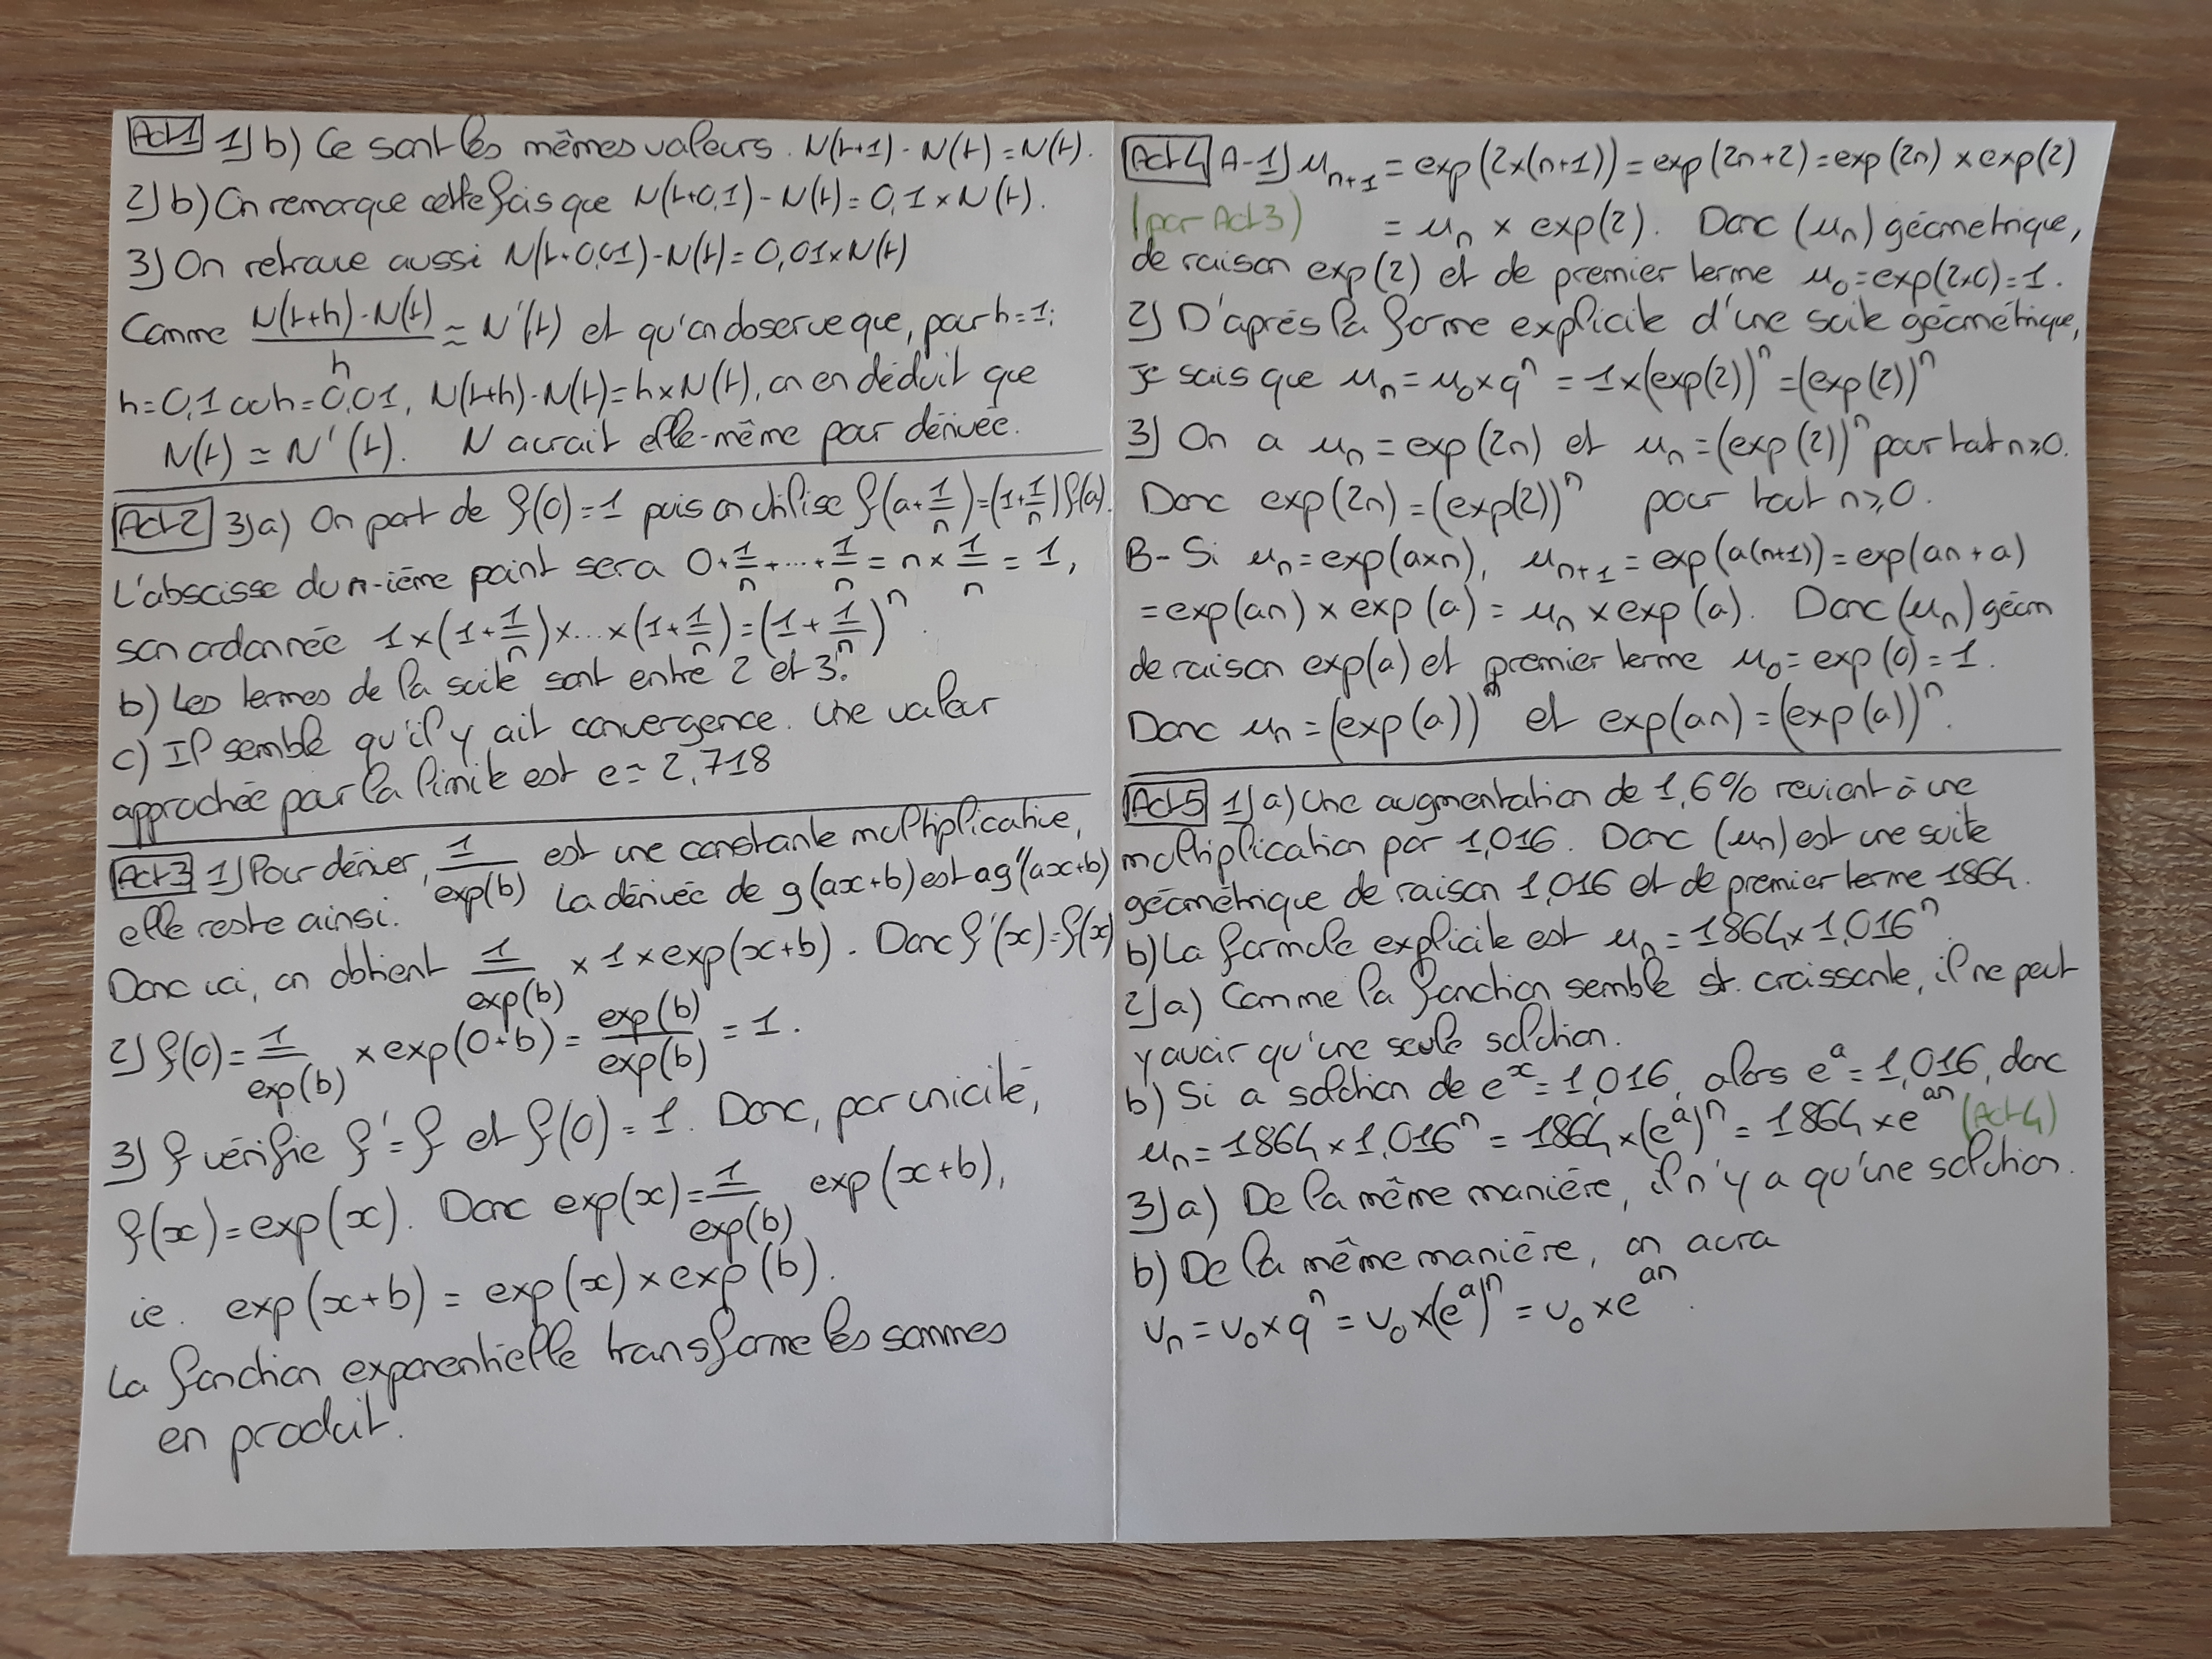 Act 1 1) b) Ce sont les mêmes valeurs. N(t+1) - N(t) = N(t).
2) b) On remarque cette fois que N(t+0,1) - N(t) = 0,1 × N(t).
3) On retrouve aussi N(t+0,01) - N(t) = 0,01 × N(t)
Comme (N(t+h) - N(t))/h ≈ N'(t) et qu'on observe que, pour h = 1;
h = 0,1 ou h = 0,01, N(t+h) - N(t) = h × N(t), on en déduit que
N(t) ≃ N'(t). N aurait elle-même pour dérivée.
Act 2 3) a) On part de f(0) = 1 puis on utilise f(a + 1/n) = (1 + 1/n) f(a).
L'abscisse du n-ième point sera 0 + 1/n + ... + 1/n = n × 1/n = 1,
son ordonnée 1 × (1 + 1/n) × ... × (1 + 1/n) = (1 + 1/n)^n.
b) Les termes de la suite sont entre 2 et 3.
c) Il semble qu'il y ait convergence. Une valeur
approchée pour la limite est e ≃ 2,718
Act 3 1) Pour dériver, 1/exp(b) est une constante multiplicative,
elle reste ainsi. La dérivée de g(ax+b) est ag'(ax+b)
Donc ici, on obtient 1/exp(b) × 1 × exp(x+b). Donc f'(x) = f(x)
2) f(0) = 1/exp(b) × exp(0+b) = exp(b)/exp(b) = 1.
3) f vérifie f' = f et f(0) = 1. Donc, par unicité,
f(x) = exp(x). Donc exp(x) = 1/exp(b) exp(x+b),
ie. exp(x+b) = exp(x) × exp(b).
La fonction exponentielle transforme les sommes
en produit.
Act 4 A-1) u_{n+1} = exp(2×(n+1)) = exp(2n+2) = exp(2n) × exp(2)
(par Act 3) = u_n × exp(2). Donc (u_n) géometrique,
de raison exp(2) et de premier terme u_0 = exp(2×0) = 1.
2) D'après la forme explicite d'une suite géométrique,
je sais que u_n = u_0 × q^n = 1 × (exp(2))^n = (exp(2))^n
3) On a u_n = exp(2n) et u_n = (exp(2))^n pour tout n ⩾ 0.
Donc exp(2n) = (exp(2))^n pour tout n ⩾ 0.
B- Si u_n = exp(a×n), u_{n+1} = exp(a(n+1)) = exp(an + a)
= exp(an) × exp(a) = u_n × exp(a). Donc (u_n) géom
de raison exp(a) et premier terme u_0 = exp(0) = 1.
Donc u_n = (exp(a))^n et exp(an) = (exp(a))^n.
Act 5 1) a) Une augmentation de 1,6% revient à une
multiplication par 1,016. Donc (u_n) est une suite
géométrique de raison 1,016 et de premier terme 1864.
b) La formule explicite est u_n = 1864 × 1,016^n
2) a) Comme la fonction semble st. croissante, il ne peut
y avoir qu'une seule solution.
b) Si a solution de e^x = 1,016, alors e^a = 1,016, donc
u_n = 1864 × 1,016^n = 1864 × (e^a)^n = 1864 × e^{an} (Act 4)
3) a) De la même manière, il n'y a qu'une solution.
b) De la même manière, on aura
v_n = v_0 × q^n = v_0 × (e^a)^n = v_0 × e^{an}.